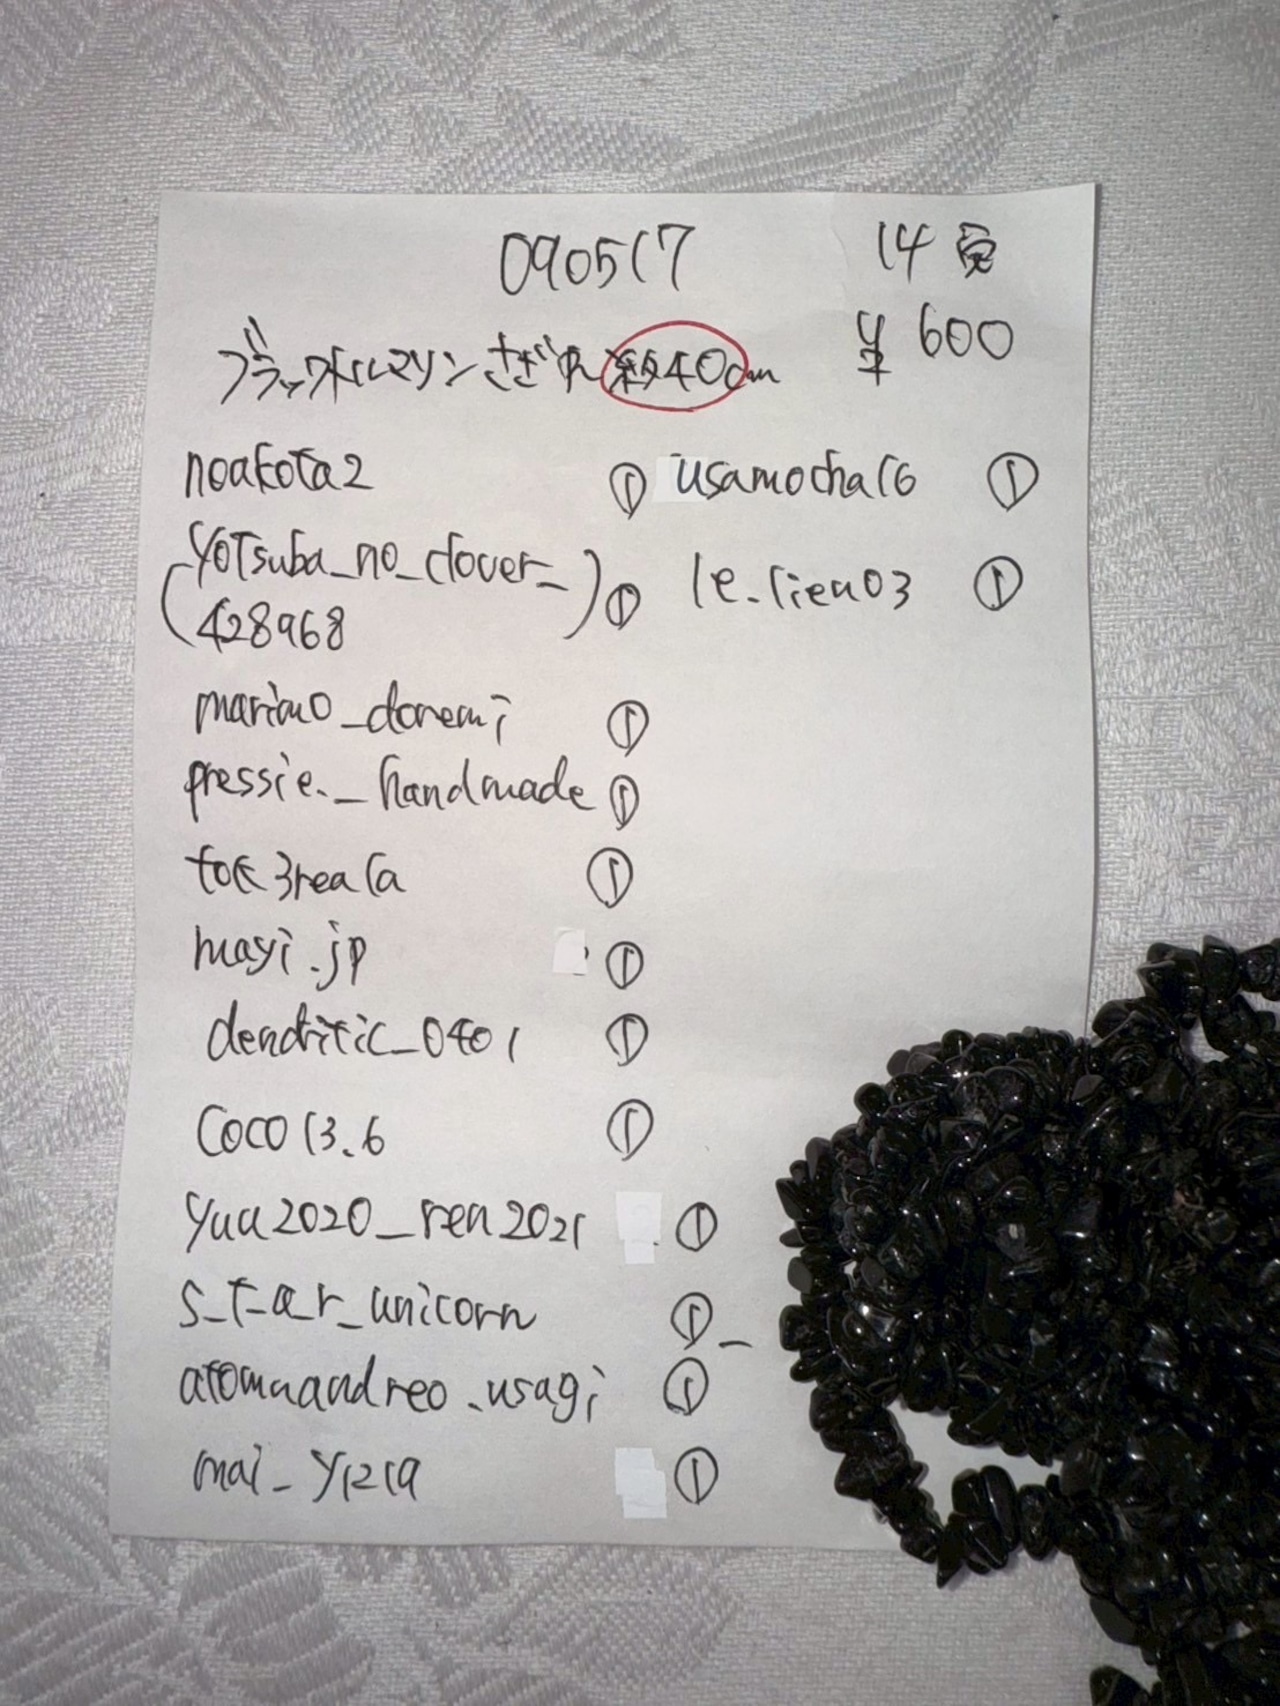 090517
14 点
ブラックトルマリンさざれ 約40cm
¥ 600
noakota2 ①
yotsuba_no_clover_
428968 ①
marimo_doremi ①
pressie._handmade ①
mayi.jp ①
dendritic_0401 ①
coco13.6 ①
yua2020_ren2021 ①
s_t_a_r_unicorn ①_
atomuandreo.usagi ①
mai_y1219 ①
usamocha16 ①
le.lien03 ①